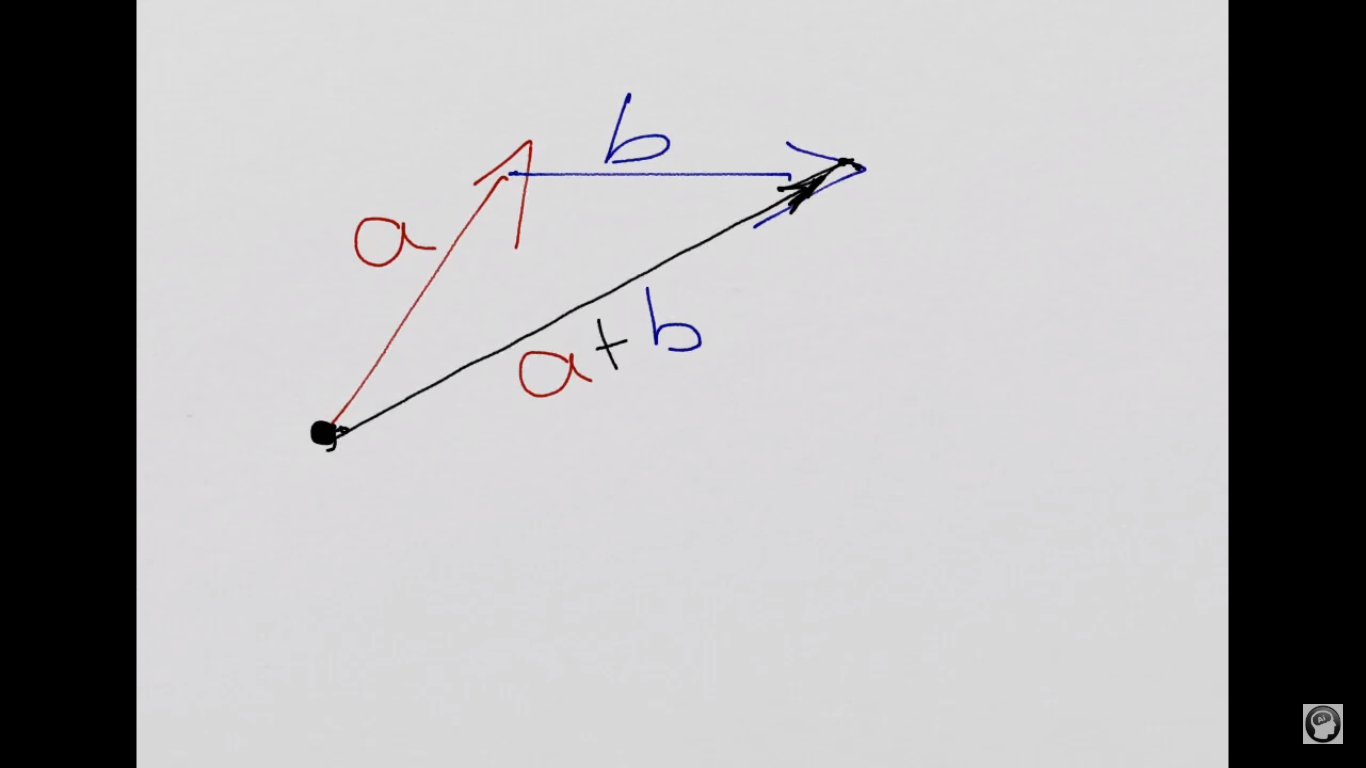 b
a
a+b
Ai